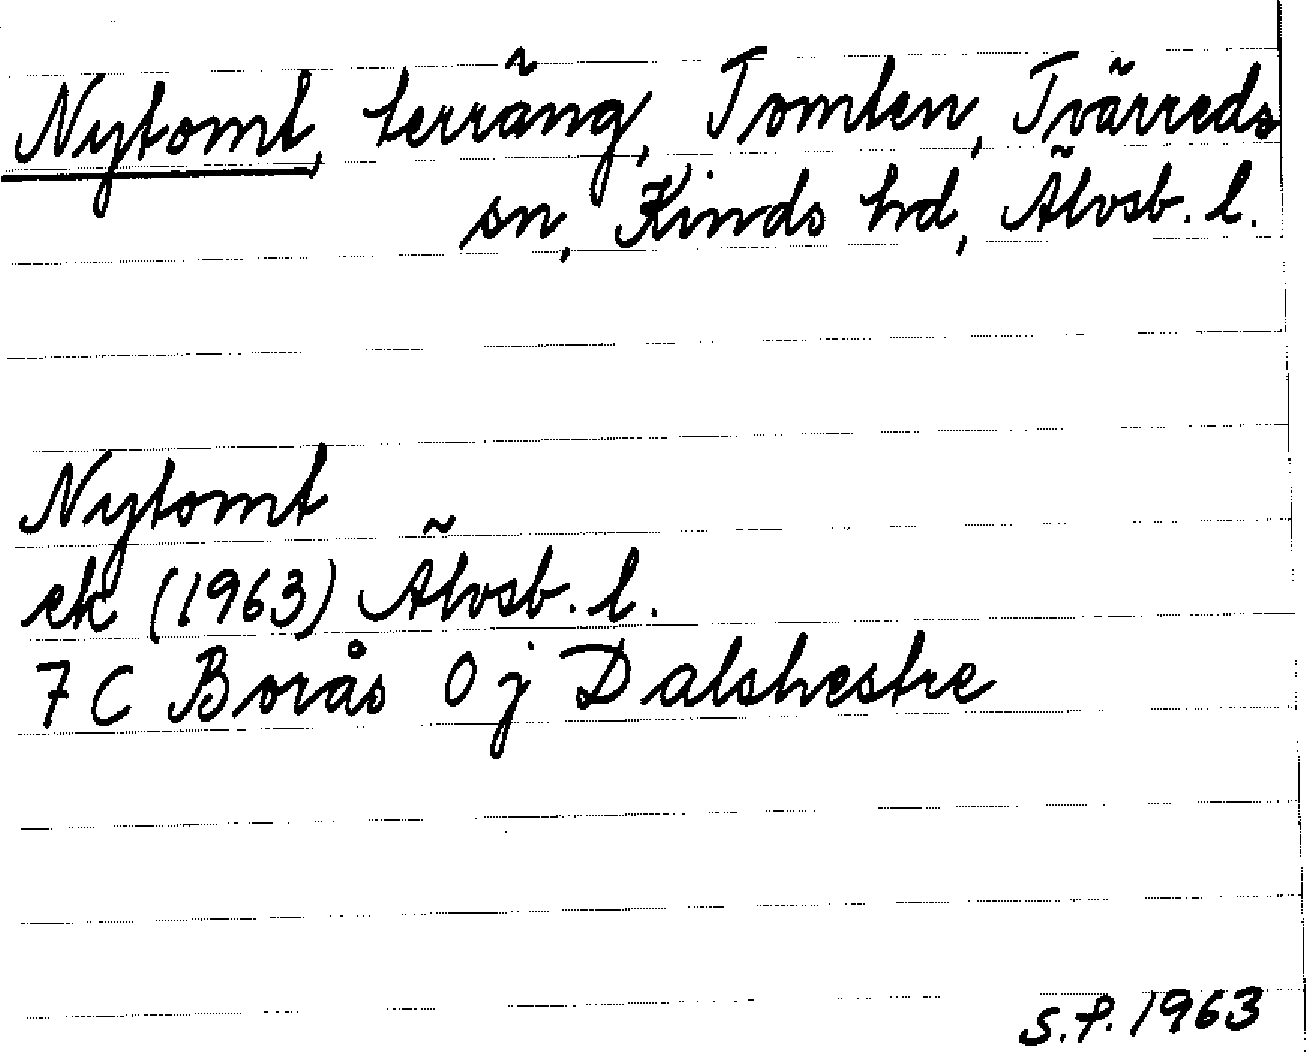 Nytomt, terräng, Tomten, Tvärreds
sn, Kinds hd, Älvsb. l.
Nytomt
ek (1963) Älvsb. l.
7 C Borås 0 j Dalshestre
S.P. 1963